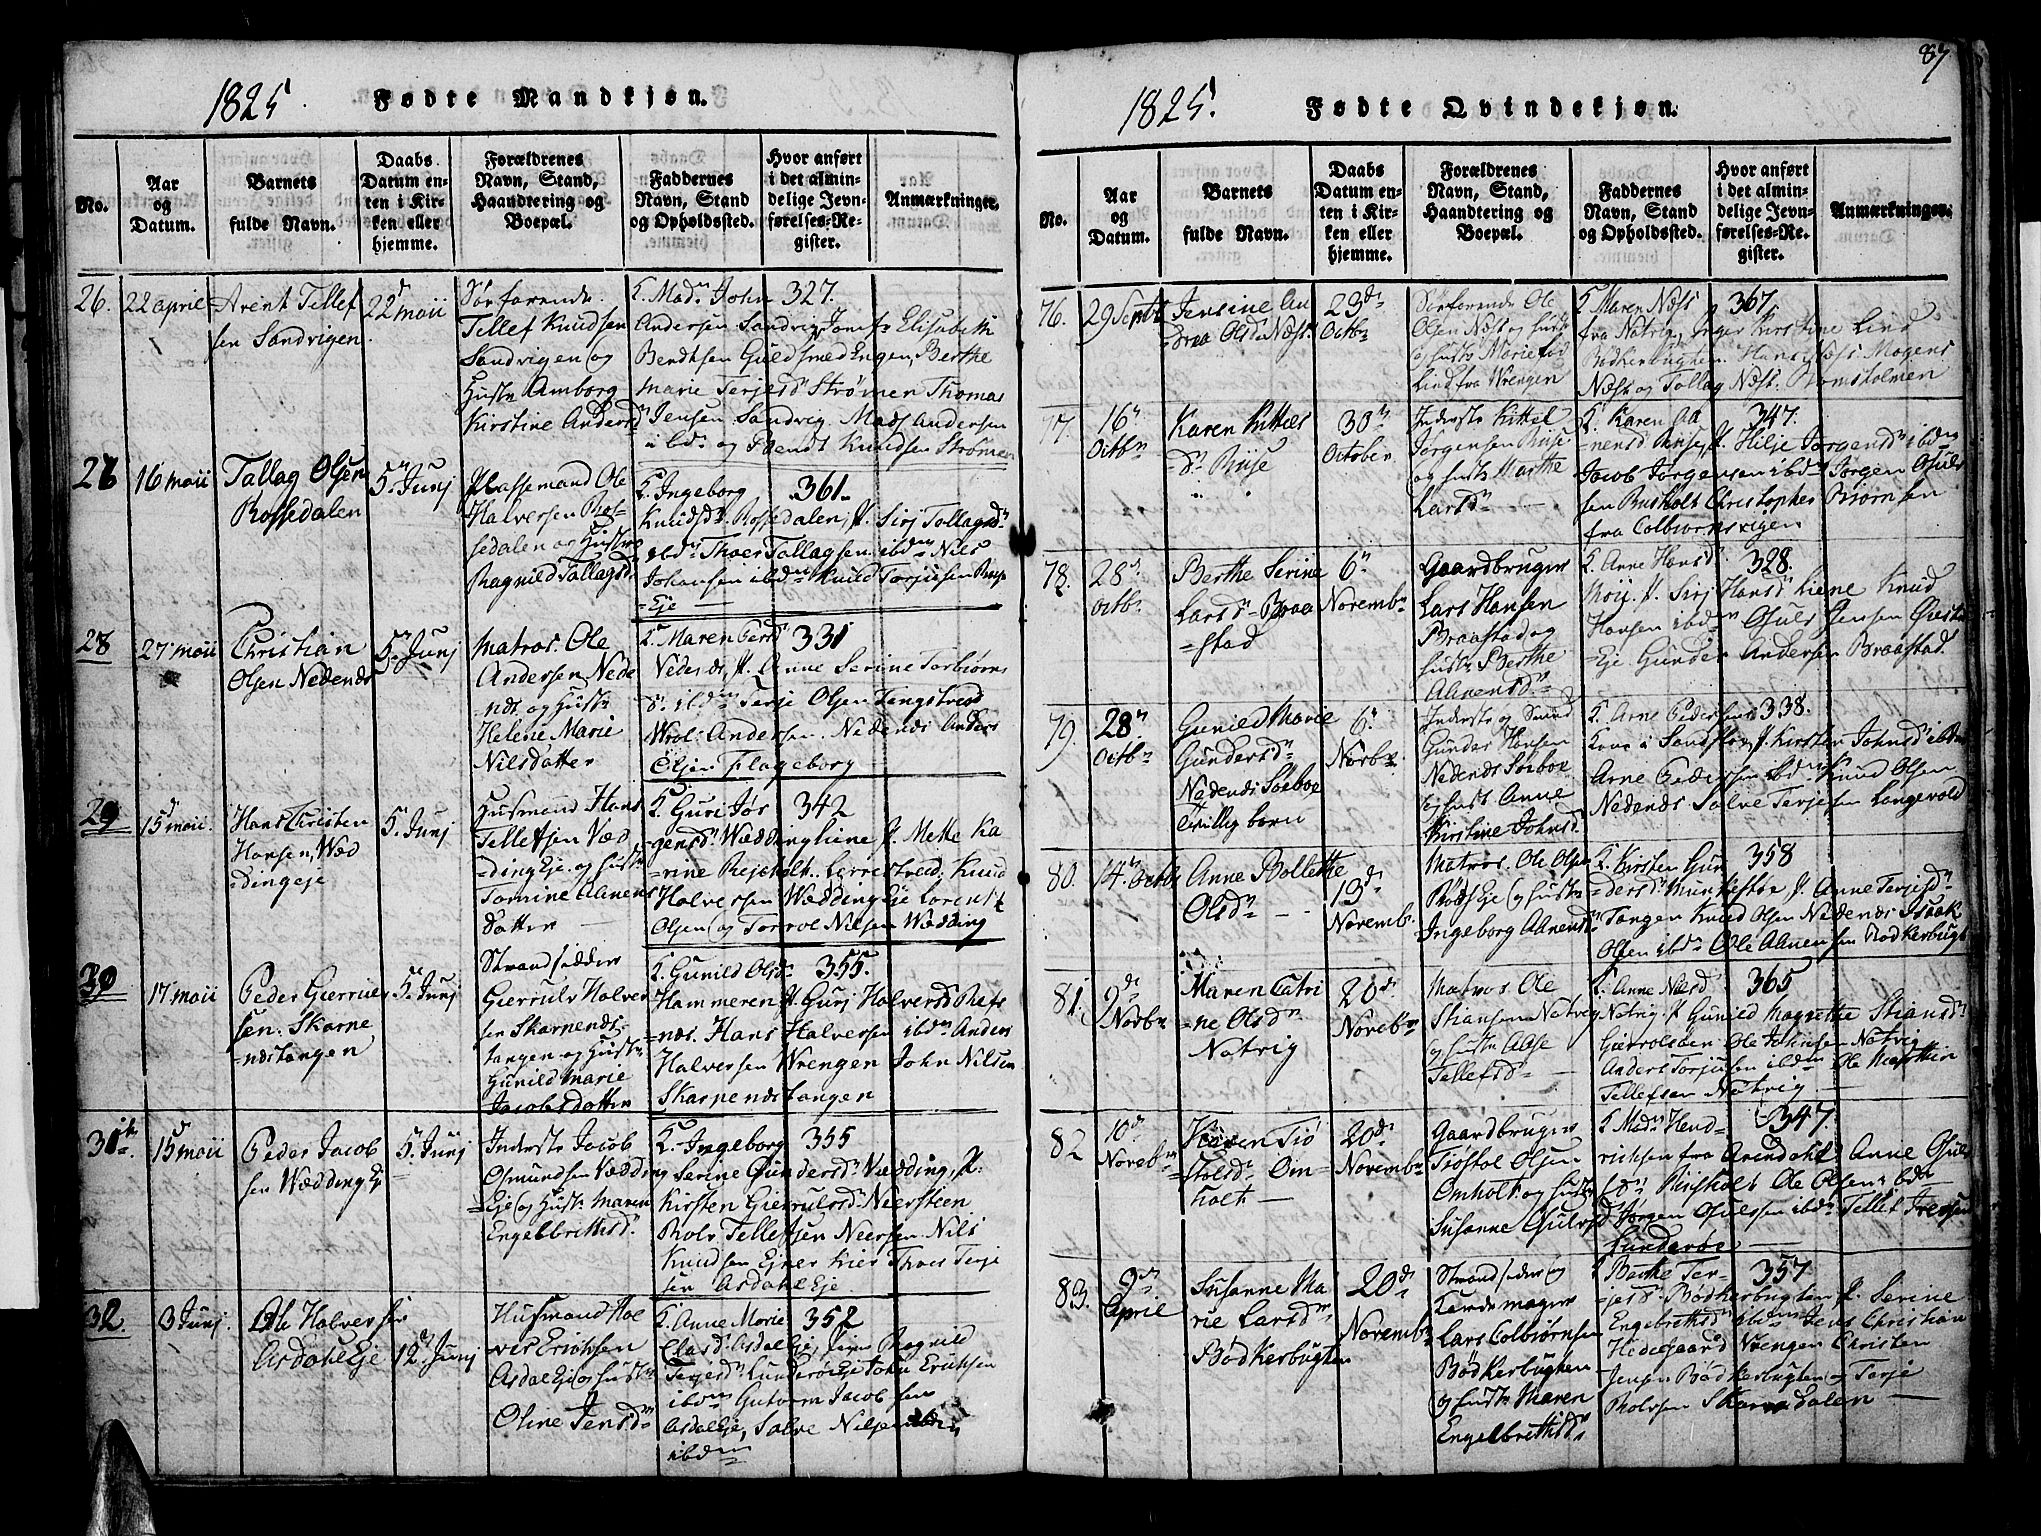 1825. Fødte Mandkjøn.
No.
Aar
og
Datum.
Barnets
fulde Navn.
Daabs
Datum en-
ten i Kir-
ken eller
hjemme.
Forældrenes
Navn, Stand,
Haandtering og
Boepæl.
Faddernes
Navn, Stand
og Opholdssted.
Hvor anført
i det almin-
delige Jevn-
førelses-Re-
gister.
Anmærkninger.
26.
22 april
Arent Tellef
sen Sandvigen
22 maii
Søefarende
Tellef Knudsen
Sandvigen og
Hustr Amborg
Kirstine Andersd
Mad. John
Andersen Sandvig, Elisabeth
Bendtsen Guldsmed Engen, Berthe
Marie Terjesd Strømen Thomas
Jensen Sandvig. Mads Andersen
ibd. og Bendt Knudsen Strømen
327.
27
16 maii
Tallag Olsen
Rossedalen
5 Junj
Plassemand Ole
Halversen Ros-
sedalen og Hustr
Ragnild Tallagsd
Ingeborg
Knudsd Rossedalen, Sirj Tollagsd
ibd Thoer Tallagsen ibd Nils
Johansen ibd Knud Torjusen Riis
=Eje
361.
28
27 maii
Christian
Olsen Nedenæs
5 Junj
Matros. Ole
Andersen Nede
næs. og Hustr
Helene Marie
Nilsdatter
Maren Persd
Nedenæs, Anne Serine Torbiørns
d. ibd Terje Olsen Longstved
Wrol. Andersen. Nedenæs Anders
Olsen Flageborg
331
29
15 maii.
Hans Christen
Hansen, Wæd
=dingeje
5 Junj
Husmand Hans
Tellefsen Væd
=ding Eje. og Hustr
Tomine Aanens
datter
Guri Jør
gensd Wædding Mette Ka
=rine Rejsholt. Knud
Halversen Wædding Eje Lorentz
Olsen og Torrol Nilsen Wædding
342
30
17 maii
Peder Gierrulv
sen. Skarpe
=næstangen
5 Junj
Strandsidder
Gierrulv Halver
sen Skarpenæs-
tangen og Hustr
Gunild Marie
Jacobsdatter
Gunild Olsd
Hammeren Gurj Halversd
=næs. Hans Halversen ibd Anders
Halversen Wrengen John Nilsen
Skarpenæstangen
355.
31
15 maii
Peder Jacob
sen Wædding Ej
5 Junj
Inderste Jacob
Osmundsen Vædding
Eje og Hustr Maren
Engelbrettsd
Ingeborg
Serine Gundersd Vædding,
Kirsten Gierrulsd Neersteen
Rolv Tellefsen Neersteen Nils
Knudsen Ejner Kier Thoer Terje
sen Asdahl Eje
355
32.
3 Junj.
Ole Halversen
Asdahl Eje
12 Junj
Husmand Hal
ver Ericksen
Asdal Eje og Hustr
Oline Jensd
Anne Marie
Asdal Eje, Ragnild
Terjesd Lunderøe Eje John Ericksen
ibd Gutorm Jacobsen
Asdal Eje, Salve Nilsen
ibd
352
87
1825. Fødte Qvindekjøn.
No.
Aar
og
Datum.
Barnets
fulde Navn.
Daabs
Datum en-
ten i Kir-
ken eller
hjemme.
Forældrenes
Navn, Stand,
Haandtering og
Boepæl.
Faddernes
Navn, Stand
og Opholdssted.
Hvor anført
i det almin-
delige Jevn-
førelses-Re-
gister.
Anmærkninger.
76.
29 Septb
Jensine An
=drea Olsdn Næss.
23
Octb
Søefarende Ole
Olsen Næss og Hust
Marie
Lind fra Wrengen
Maren Næss
fra Natvig, Inger Kirstine Lind
Bødkerbugten. Hans Næss Mogens
Næss og Tallag Næss. Bomsholmen
367.
77.
16
Octb
Karen Kittels
=d Riise
30
October
Inderste Kittel
Jørgensen Riise
og Hustr Marthe
Larsd
Karen Aa
nensd Riise, Silje Jørgensd ibd
Jacob Jørgensen ibd Jørgen Gjuls
sen Risholt Christopher Biørnsen
fra Colbiørnsvigen
347.
78.
28
Octb
Berthe Serine
Larsd Braa
=stad
6
Novemb
Gaardbruger
Lars Hansen
Braastad og
Hustr Berthe
Aanensd
Anne Hansd
Moii. Sirj Hansd Liene Knud
Hansen ibd Giuls Jensen
=Eje Gunder Andersen Braastad.
328.
79.
28
Octb
Gunild Marie
Gundersd
Nedenæs Søeboe
tvillig barn
6
Novb
Inderste og Smed
Gunder Hansen
Nedenæs Søeboe
og Hust Anne
Kirstine Johnsd
Arne Pedersens
Kone i Sandstøe, Kirsten Johnsd ibd
Arne Pedersen ibd Knud Olsen
Nedenæs Salve Terjesen Langevold
338.
80.
14. Octb
Anne Bollette
Olsd
13
Novemb.
Matros. Ole Olsen
Rods Eje og Hustr
Ingeborg Aanensd
Kirsten Gun
=dersd Munkestøe Anne Terjesd
Tangen Knud Olsen Nedenæs Isaak
Olsen ibd Ole Aanensen Bødkerbugt
358
81.
9
Novb
Maren Catri
=ne Olsd
Natvig
20
Noveb
Matros Ole
Stiansen Natvig
og Hustr Aase
Tellefsd
Anne Nilsd
Natvig. Gunild Magrethe Stiansd
Gierrolsøen Ole Johnsen Natvig
Anders Torjusen ibd Ole Martin
Tellefsen Natvig
365
82
10
Noveb
Karen Tiø
stolsd Om
holt
20
Novemb
Gaardbruger
Tiøstol Olsen
Omholt og Hustr
Susanne Giulvsd
Mad. Hend-
richsen fra Arendahl Anne Giuls
d Risholt Ole Olsen ibd
Jørgen Giulsen ibd Tellef Iversen
Lunderøe
347.
83.
9
April
Susanne Ma
rie Larsd
Bødkerbugten
20
Novemb
Strandsider og
Kandemager
Lars Colbiørnsen
Bødkerbugten
og Hustr Maren
Engelbrettsd
Berthe Ter-
jesd. Bødkerbugten Serine
Engebretsd ibd Jens Christian
Hedegaard Vrengen Christen
Jensen Bødkerbugten og Terje
Rolvsen Skarredalen
357